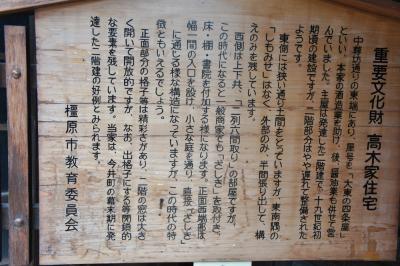 重要文化財 高木家住宅
中尊坊通りの東端にあり、屋号を「大東の四条屋」
といい、本家の酒造業を助け、後、醤油業も併せて営
んでいました。主屋は発達した二階建で、十九世紀初
期頃の建設ですが、二階部分はやや遅れて整備された
ようです。
東側には狭い通り土間をとっていますが、東南隅の
「しもみせ」はなく、外部のみ、半間張り出して、構
えのみを残しています。
西側は上下共、「二列六間取り」の部屋ですが、
この時代になると一般商家でも「ざしき」を取付き、
床・棚・書院を付加する様になります。正面西端部は
幅一間の入口を設け、小さな庭を通り、直接「ざしき」
に通じる様な構造になっていますが、この時代の特
徴ともいえるでしょう。
正面部分の格子等は精彩さがあり、二階の窓は大き
く開いて開放的ですが、なお、出格子にする等閉鎖的
な要素を残しています。当家は、今井町の幕末期に発
達した二階建の好例とみられます。
橿原市教育委員会